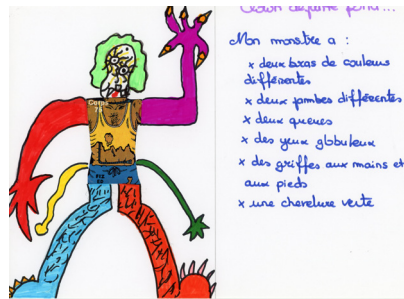 Mon monstre a :
x deux bras de couleurs
différentes
x deux jambes différentes
x deux queues
x des yeux globuleux
x des griffes aux mains et
aux pieds
x une chevelure verte